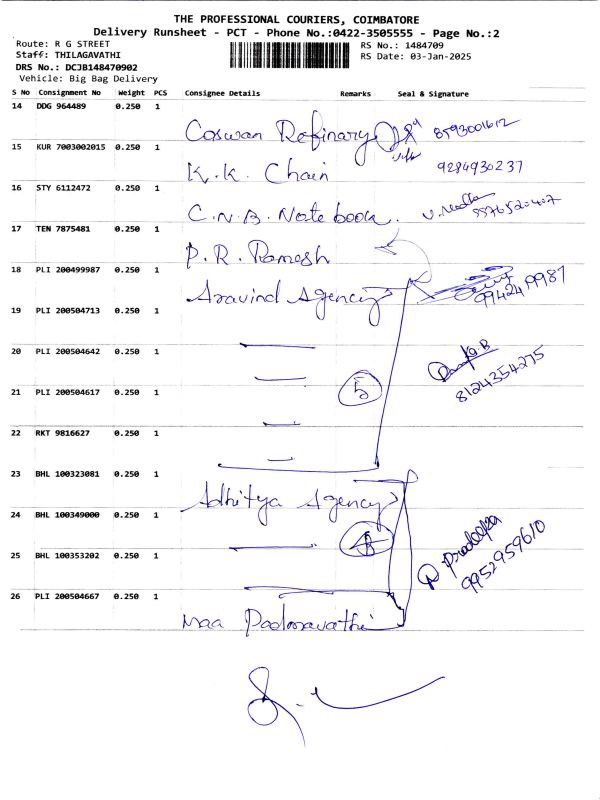 THE PROFESSIONAL COURIERS, COIMBATORE
Delivery Runsheet - PCT - Phone No.:0422-3505555 - Page No.:2
Route: R G STREET RS No.: 1484709
Staff: THILAGAVATHI RS Date: 03-Jan-2025
DRS No.: DCJB148470902
Vehicle: Big Bag Delivery
S No Consignment No Weight PCS Consignee Details Remarks Seal & Signature
14 DDG 964489 0.250 1
Coswan Refinary 8593001612
15 KUR 7003002015 0.250 1
K.K. Chain 9284930237
16 STY 6112472 0.250 1
C.N.B. Note book.
17 TEN 7875481 0.250 1
P.R. Ramesh
18 PLI 200499987 0.250 1
Aravind Agency 9942419987
19 PLI 200504713 0.250 1
20 PLI 200504642 0.250 1
8124354275
21 PLI 200504617 0.250 1
5
22 RKT 9816627 0.250 1
23 BHL 100323081 0.250 1
Adhitya Agency
24 BHL 100349000 0.250 1
25 BHL 100353202 0.250 1
9952959610
26 PLI 200504667 0.250 1
Maa Padmavathi